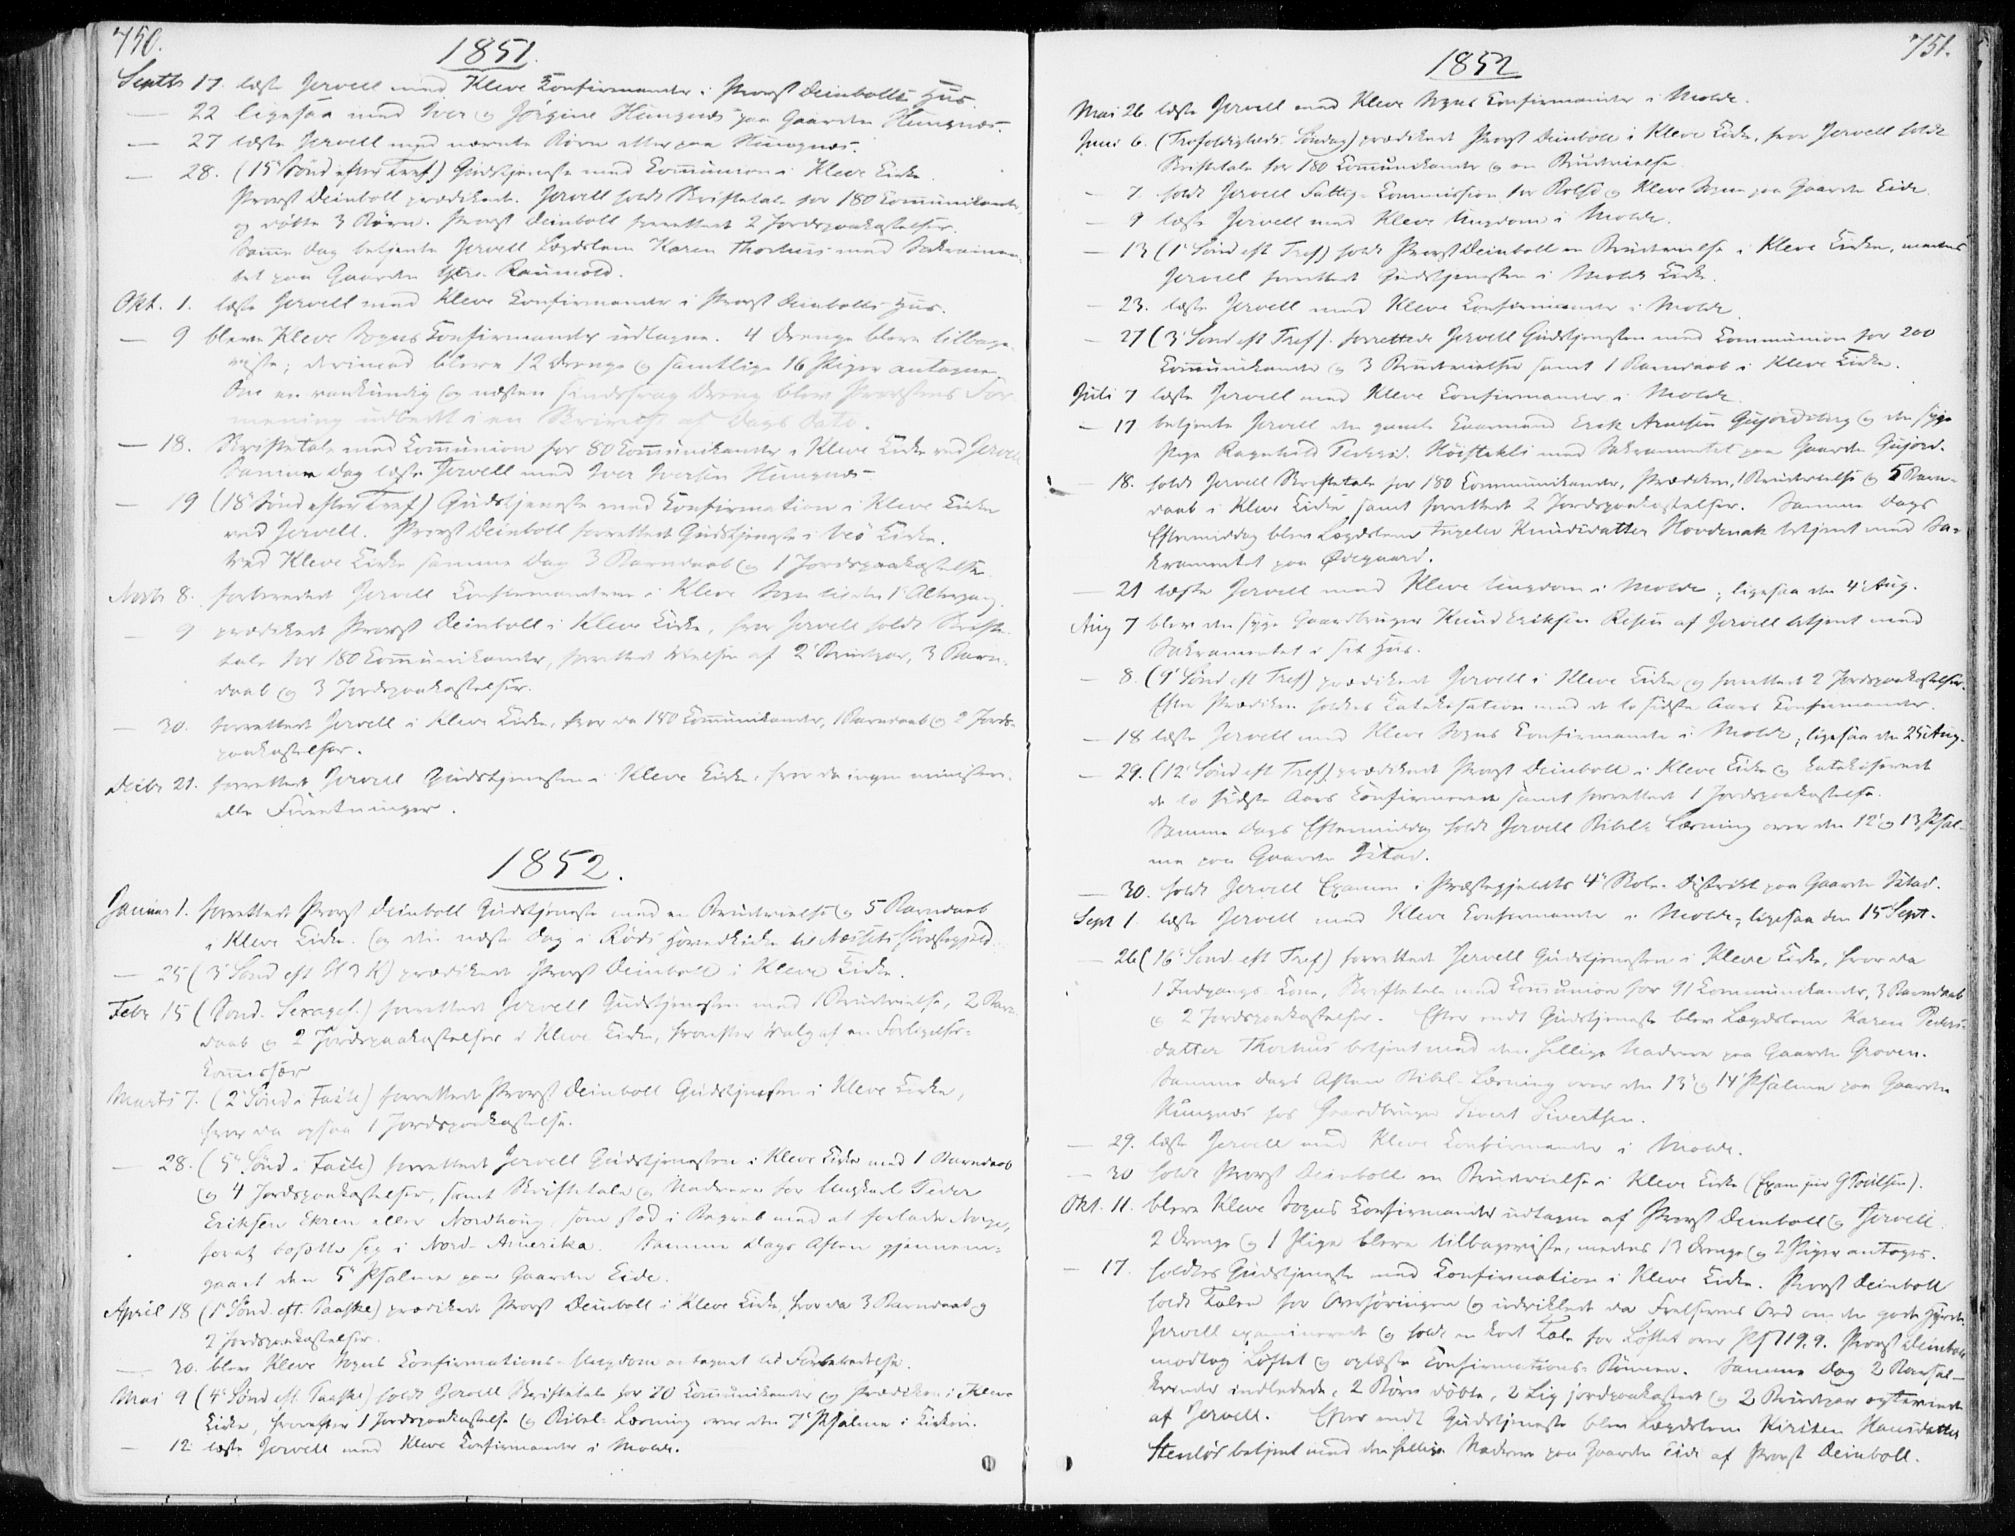 750.
1851.
Septbr 17. læste Jervell med Kleve Konfirmander i Provst Deinbolls Hus.
— 22 ligesaa med Iver og Jørgine Hungnæs paa Gaarden Hungnæs.
— 27 læste Jervell med nævnte Børn etter paa Hungnæs.
— 28. (15de Sønd efter Tref) Gudstjeneste med Communion i Kleve Kirke
Provst Deinboll prædikede. Jervell holdt Skriftetale for 180 Communikanter,
og døbte 3 Børn. Provst Deinboll forrettede 2 Jordspaakastelser.
Samme Dag betjente Jervell Lægdslem Karen Thorhus med Sakramen-
tet paa Gaarden Raumold.
Okt. 1. læste Jervell med Kleve Confirmander i Provst Deinbolls Hus.
— 9 bleve Kleve Sogns Confirmander udtagne. 4 Drenge bleve tilbage-
viste; derimod bleve 12 Drenge og samtlige 16 Piger antagne.
Om en vankundig og næsten sindssvag Dreng blev Provstens For-
mening udbedt i en Skrivelse af Dags Dato.
— 18. Skriftetale med Communion for 80 Communikanter i Kleve Kirke ved Jervell
Samme Dag læste Jervell med Iver Iversen Hungnæs
— 19 (18de Sønd efter Tref) Gudstjeneste med Confirmation i Kleve Kirke
ved Jervell. Provst Deinboll forrettede Gudstjeneste i Veø Kirke.
Ved Kleve Kirke samme Dag 3 Barnedaab og 1 Jordspaakastelse
Novbr 8. forberedede Jervell Confirmanderne i Kleve Sogn til den 1ste Altergang.
— 9 prædikede Provst Deinboll i Kleve Kirke, hvor Jervell holdt Skrifte-
tale for 180 Communikanter, forrettede Vielse af 2 Brudepar, 3 Barne-
daab og 3 Jordspaakastelser.
— 30. forrettede Jervell i Kleve Kirke, hvor da 180 Communikanter, 1 Barnedaab og 2 Jords-
paakastelser.
Decbr 21. forrettede Jervell Gudstjenesten i Kleve Kirke, hvor da ingen ministeri-
elle Forretninger.
1852.
Januar 1. forrettede Provst Deinboll Gudstjeneste med en Brudevielse og 5 Barnedaab
i Kleve Kirke. (og den næste Dag i Røds Hovedkirke til Næssets Præstegjeld.
— 25 (3de Sønd eft H 3 K) prædikede Provst Deinboll i Kleve Kirke.
Febr 15 (Sønd. Sexages.) forrettede Jervell Gudstjenesten med 1 Brudevielse, 2 Barne-
daab og 2 Jordspaakastelser i Kleve Kirke, hvorefter Valg af en Forligelses-
Kommissær
Marts 7. (2den Sønd i Faste) forrettede Provst Deinboll Gudstjenesten i Kleve Kirke,
hvor da ogsaa 1 Jordspaakastelse.
— 28. (5te Sønd i Faste) forrettede Jervell Gudstjenesten i Kleve Kirke med 1 Barnedaab
og 4 Jordspaakastelser, samt Skriftetale og Nadvere for Ungkarl Peder
Eriksen Ekren eller Nordhoug, som stod i Begreb med at forlade Norge,
for at bosætte sig i Nord-Amerika. Samme Dags Aften gjennem-
gaaet den 5te Psalme paa Gaarden Eide.
April 18 (1ste Sønd. eft. Paaske) prædikede Provst Deinboll i Kleve Kirke, hvor da 3 Barnedaab og
2 Jordspaakastelser.
— 30. blev Kleve Sogns Confirmations-Ungdom antaget til Forberedelse.
Mai 9 (4de Sønd eft. Paaske) holdt Jervell Skriftetale for 70 Communikanter og Prædiken i Kleve
Kirke, hvorefter 1 Jordspaakastelse og Bibel-Læsning over den 7de Psalme i Kirken.
— 12 læste Jervell med Kleve Confirmander i Molde.
751.
1852
Mai 26 læste Jervell med Kleve Sogns Confirmander i Molde.
Juni 6. (Trefoldigheds-Søndag) prædikede Provst Deinboll i Kleve Kirke, hvor Jervell holdt
Skriftetale for 180 Communikanter og en Brudevielse
— 7. holdt Jervell Fattig-Commission for Bolsø og Kleve Sogne paa Gaarden Eide.
— 9 læste Jervell med Kleve Ungdom i Molde.
— 13 (1ste Sønd eft Tref) holdt Provst Deinboll en Brudevielse i Kleve Kirke, medens
Jervell forrettede Gudstjenesten i Molde Kirke.
— 23. læste Jervell med Kleve Confirmander i Molde.
— 27 (3de Sønd eft Tref) forrettede Jervell Gudstjenesten med Communion for 200
Communikanter og 3 Brudevielser samt 1 Barnedaab i Kleve Kirke.
Juli 7 læste Jervell med Kleve Confirmander i Molde.
— 17 betjente Jervell den gamle Kaarmand Erik Arnesen og den syge
Pige Ragnhild Pedersd. med Sakramentet paa Gaarden
— 18. holdt Jervell Skriftetale for 180 Communikanter, Prædiken, 1 Brudevielse og 5 Barne-
daab i Kleve Kirke, samt forrettede 2 Jordspaakastelser. Samme Dags
Eftermiddag blev Lægdslem Ingeleiv Knudsdatter Hovdenak betjent med Sa-
kramentet paa Ødegaard.
— 21 læste Jervell med Kleve Ungdom i Molde; ligesaa den 4de Aug.
Aug 7 blev den syge Gaardbruger Knud Eriksen af Jervell betjent med
Sakramentet i sit Hus.
— 8. (9de Sønd eft Tref) prædikede Jervell i Kleve Kirke og forrettede 2 Jordspaakastelser.
Efter Prædiken holdtes Catekisation med de to sidste Aars Confirmander.
— 18 læste Jervell med Kleve Sogns Confirmander i Molde; ligesaa den 25de Aug.
— 29. (12te Sønd eft Tref) prædikede Provst Deinboll i Kleve Kirke og katekiserede
de to sidste Aars Confirmerede samt forrettede 1 Jordspaakastelse.
Samme Dags Eftermiddag holdt Jervell Bibel-Læsning over den 12te og 13de Psal-
me paa Gaarden Istad.
— 30. holdt Jervell Examen i Præstegjeldets 4de Skole-Distrikt paa Gaarden Istad.
Sept 1 læste Jervell med Kleve Confirmander i Molde; ligesaa den 15 Sept.
— 26 (16de Sønd. eft Tref) forrettede Jervell Gudstjenesten i Kleve Kirke, hvor da
1 Indgangs-Kone, Skriftetale med Communion for 91 Communikanter, 3 Barnedaab
og 2 Jordspaakastelser. Efter endt Gudstjeneste blev Lægdslem Karen Peders-
datter Thorhus betjent med den hellige Nadvere paa Gaarden Groven.
Samme Dags Aften Bibel-Læsning over den 13de og 14de Psalme paa Gaarden
Hungnæs hos Gaardbruger Sivert Sivertsen.
— 29. læste Jervell med Kleve Confirmander i Molde.
— 30 holdt Provst Deinboll en Brudevielse i Kleve Kirke
Okt. 11. bleve Kleve Sogns Confirmander udtagne af Provst Deinboll og Jervell.
2 Drenge og 1 Pige bleve tilbageviste, medens 13 Drenge og 2 Piger antoges.
— 17. holdtes Gudstjeneste med Confirmation i Kleve Kirke. Provst Deinboll
holdt Talen før Overhøringen og udviklede da Frelserens Ord om den gode Hyrde.
Jervell examinerede og holdt en kort Tale før Løftet over Ps 119,9. Provst Deinboll
modtog Løftet og oplæste Confirmations-Bønnen. Samme Dag 2 Barsel-
kvinder indledede, 2 Børn døbte, 2 Lig jordpaakastede og 2 Brudepar ægteviede
af Jervell. Efter endt Gudstjeneste blev Lægdslem Kirsten Hansdatter
Stenløs betjent med den hellige Nadvere paa Gaarden Eide af Provst Deinboll.